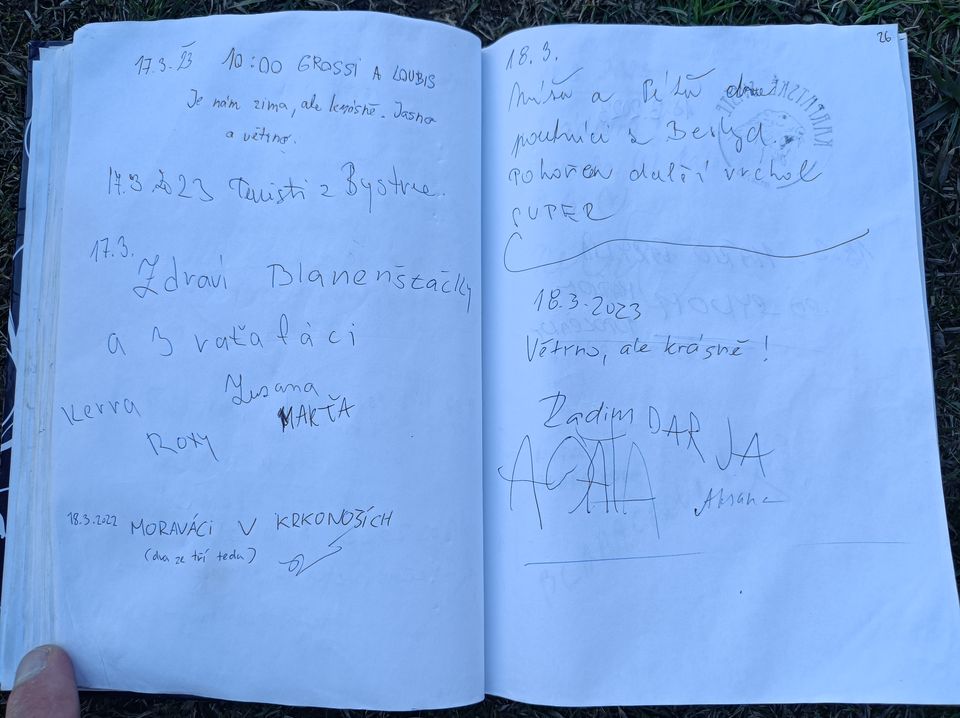 17.3. 23 10:00 GROSSI A LOUBIS
Je nám zima, ale krásně. Jasno
a větrno.
17.3 2023 Turisti z Bystrce.
17.3.
Zdraví Blanenštačky
a 3 raťafáci
Zuzana
Kerra
MAKŤA
Roxy
18.3.2022 MORAVÁCI V KRKONOŠÍCH
(dva ze tří teda)
26
18.3.
Míša a Péťa dva
poutníci z Beskyd.
pohořen další vrchol
SUPER
18.3.2023
Větrno, ale krásně!
Radim DARJA
AGATA
Aksana